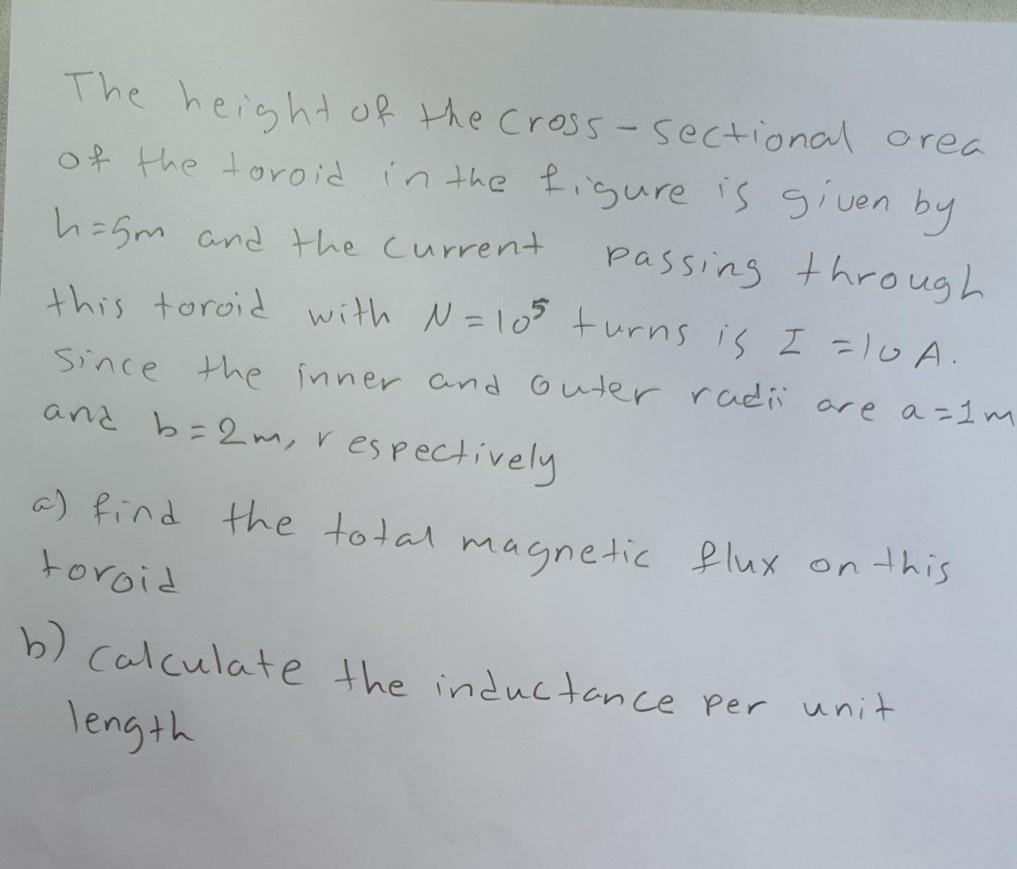 The height of the cross-sectional area
of the toroid in the figure is given by
h=5m and the current passing through
this toroid with N=10⁵ turns is I=10A.
Since the inner and outer radii are a=1m
and b=2m, respectively
a) find the total magnetic flux on this
toroid
b) calculate the inductance per unit
length